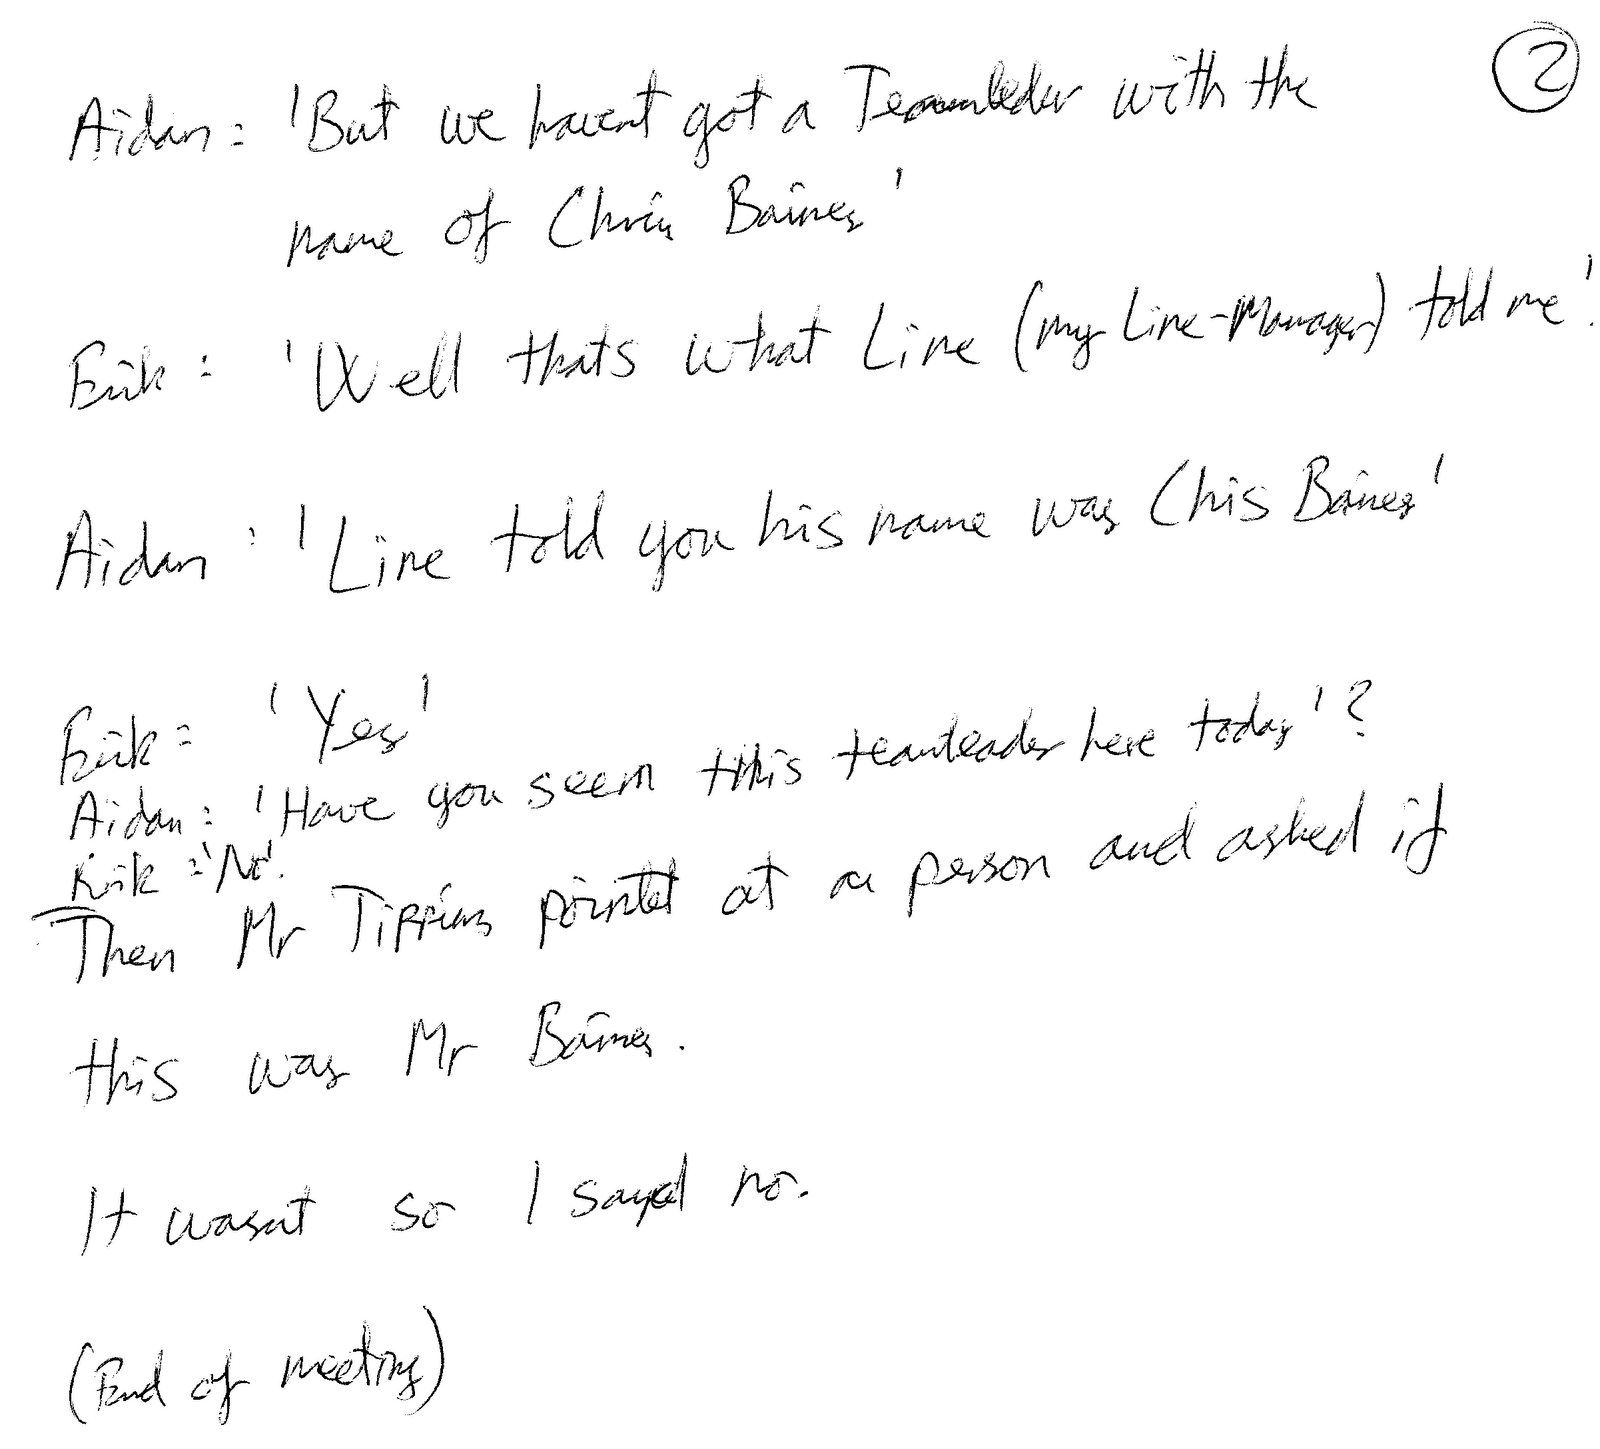 ②
Aidan: 'But we havent got a Teamleder with the
name of Chris Baines'
Erik: 'Well thats what Line (my Line-Manager) told me'.
Aidan: 'Line told you his name was Chis Baines'
Erik: 'Yes'
Aidan: 'Have you seem this teamleader here today'?
Erik: 'No'.
Then Mr Tippins pointet at a person and asked if
this was Mr Baines.
It wasnt so I sayed no.
(End of meeting)